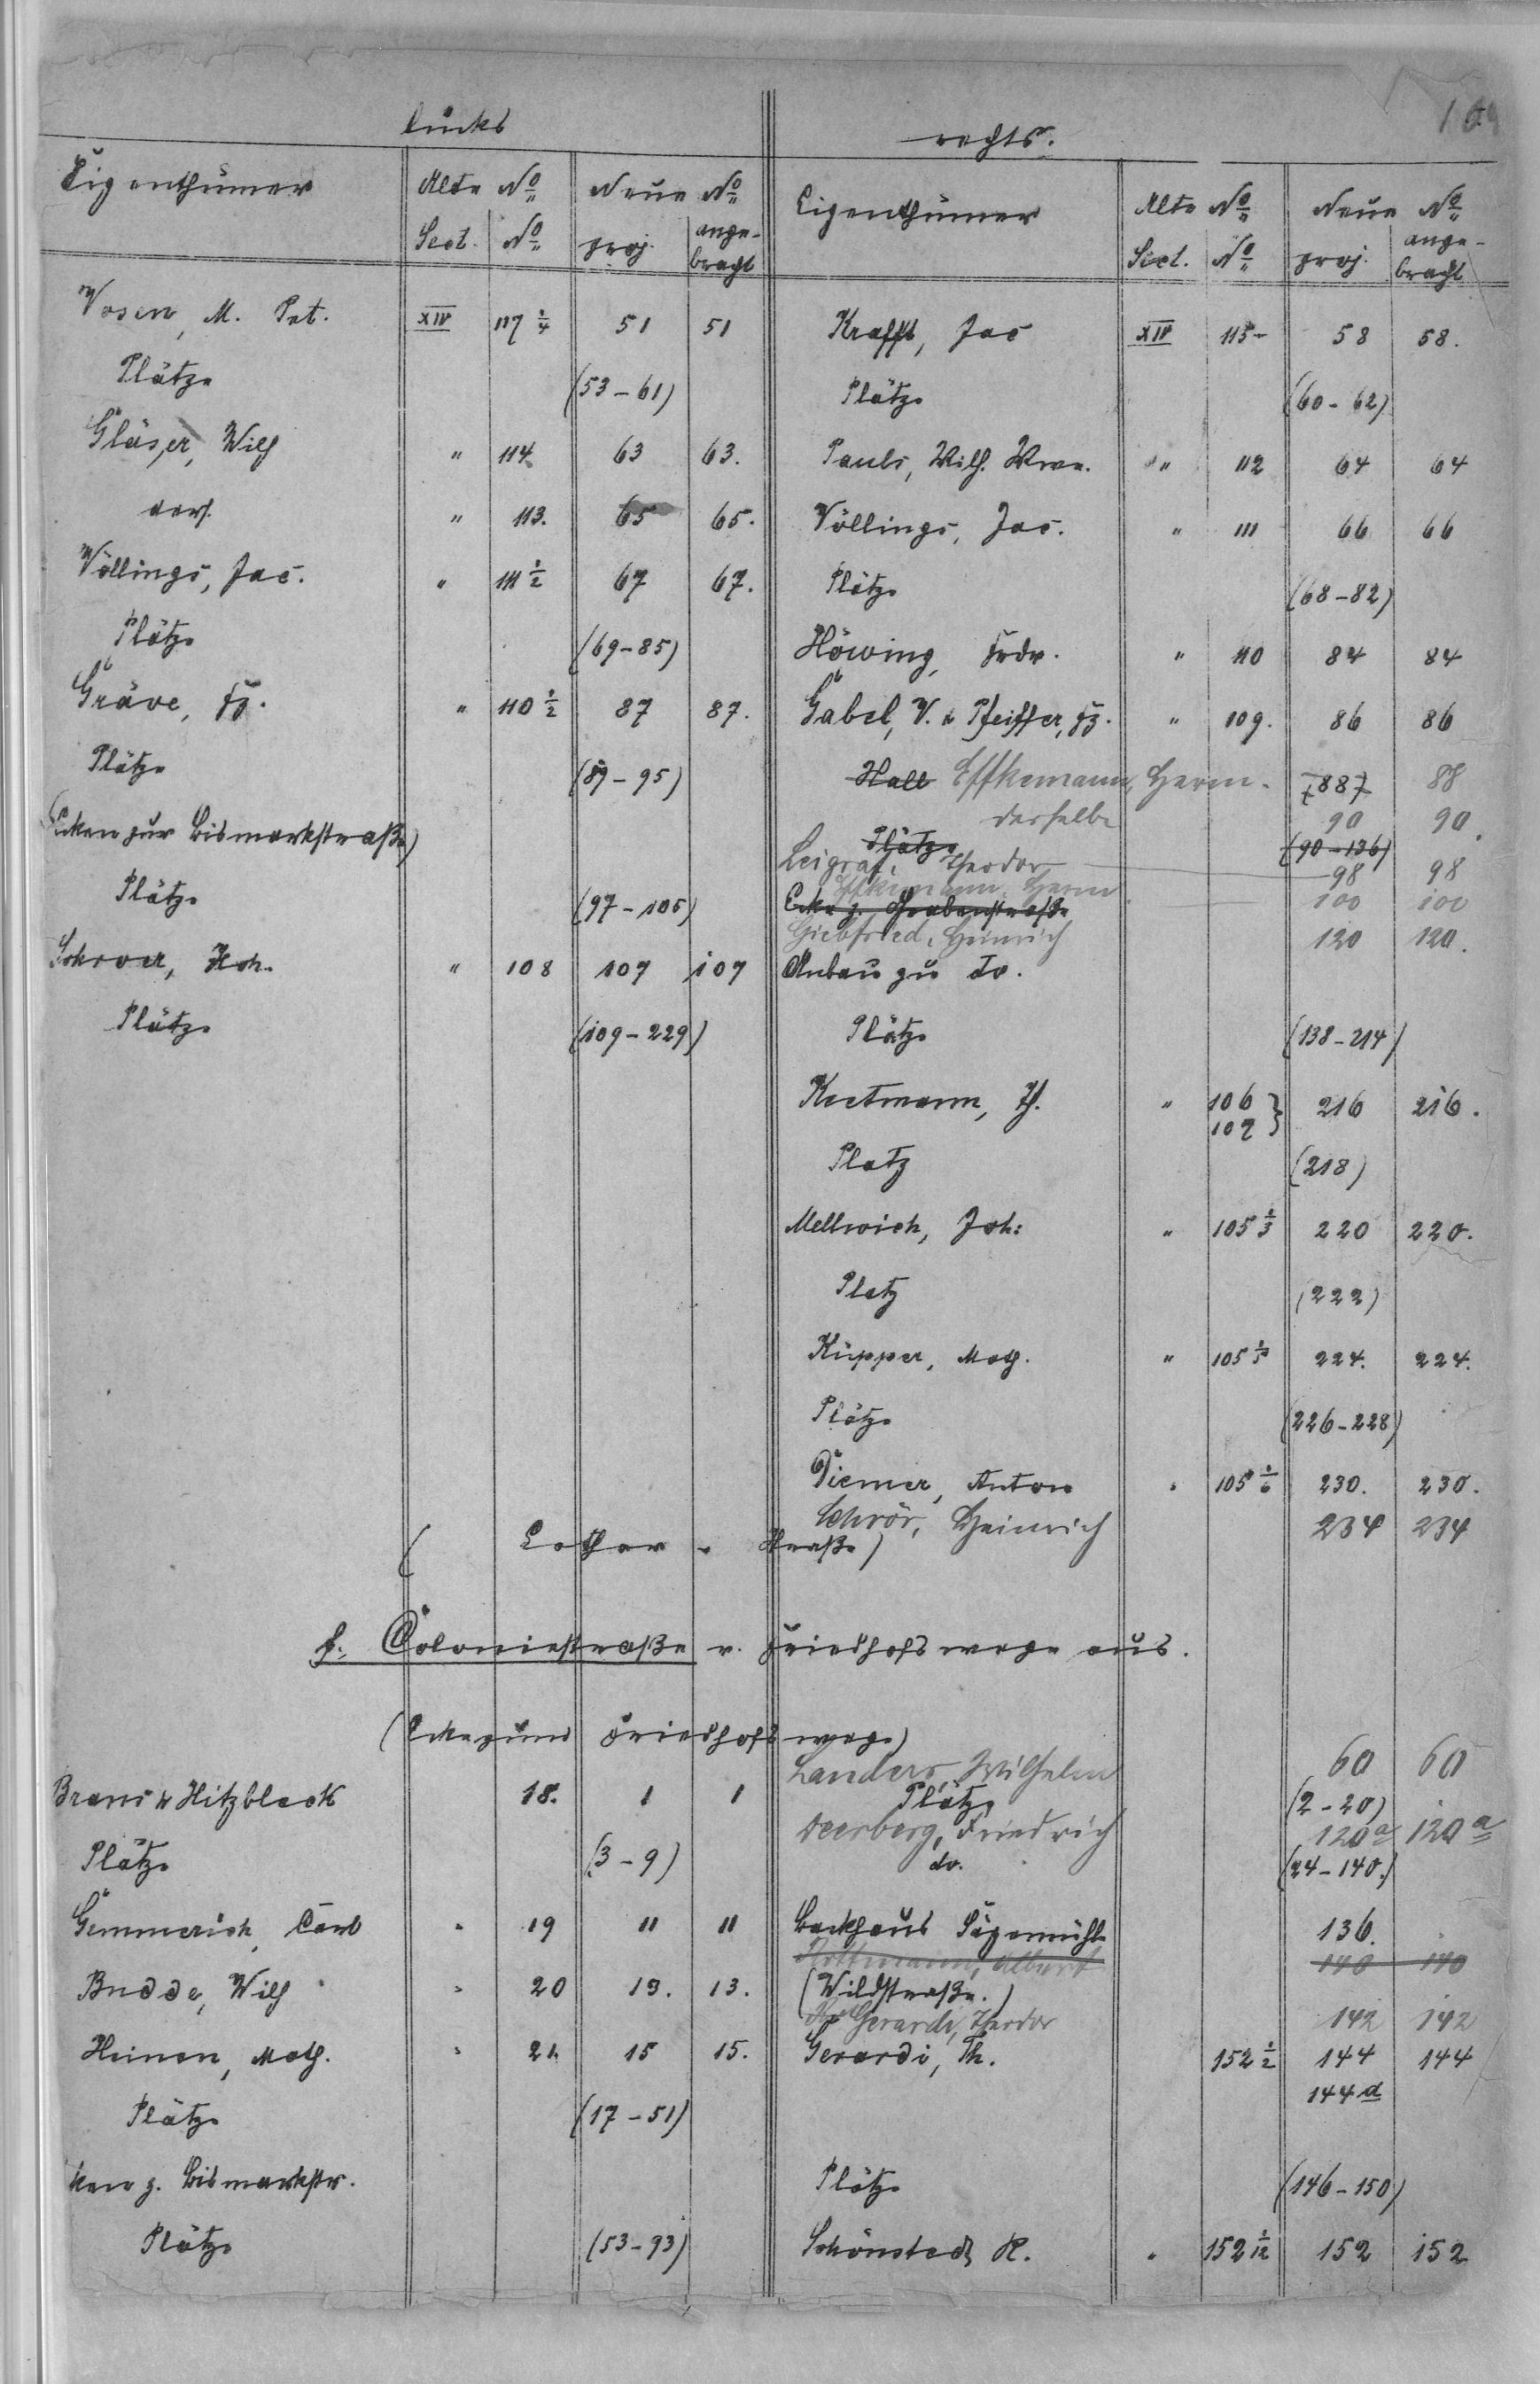 links rechts.
Eigenthümer Alte No Neue No Eigenthümer Alte No Neue No
Sect. No proj. ange- Sect. No proj. ange-
bracht bracht
Vosen, M. Pet. XIV 117 1/4 51 51 Krafft, Jac XIV 115 58 58.
Plätze (53-61) Plätze (60-62)
Gläser, Wilh " 114 63 63. Pauls, Wilh. Wwe. " 112 64 64
ders. " 113. 65 65. Völlings, Jac. " 111 66 66
Völlings, Jac. " 111 1/2 67 67. Plätze (68-82)
Plätze (69-85) Höwing, Frdr. " 110 84 84
Gräve, Fz. " 110 1/2 87 87. Gabel, V. & Pfeiffer, Fz. " 109. 86 86
Plätze (89-95) Hall Effkemann, Herm. (88) 88
derselbe 90 90.
(Ecken zur Bismarkstraße) Plätze (90-136)
Leigraf, Theodor 98 98
Plätze (97-105) Effkemann, Herm 100 100
Ecke z. Grabenstraße
Giebfried, Heinrich 120 120.
Schroer, Hch. " 108 107 107 Anbau zu do.
Plätze (109-229) Plätze (138-214)
Keetmann, Th. " 106 } 216 216.
107 }
Platz (218)
Mellwich, Joh: " 105 1/3 220 220.
Platz (222)
Küpper, Math. " 105 1/5 224. 224.
Plätze (226-228)
Diemer, Anton " 105 1/6 230. 230.
Schrör, Heinrich 234 234
(Lothar-Straße)
f. Coloniestraße v. Friedhofswege aus.
(Ecke zum Friedhofswege)
Landers, Wilhelm 60 60
Brans & Hitzbleck 18. 1 1 Plätze (2-20)
Deerberg, Friedrich 120a 120a
Plätze (3-9) do. (24-140.)
Gemmerich, Carl " 19 11 11 Backhaus Sägemühle 136.
Albert 140 140
Budde, Wilh " 20 13. 13. (Wildstraße.)
Gerardi, Theodor 142 142
Heinen, Math. " 21. 15 15. Gerardi, Th. 152 1/2 144 144
144a
Plätze (17-51)
ken z. Bismarkstr. Plätze (146-150)
Plätze (53-93) Schönstedt, R. " 152 1/12 152 152